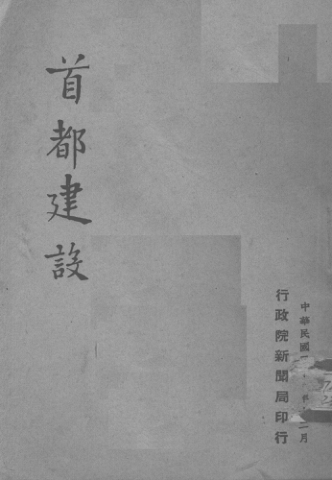 首都建設
中華民國 年 二月
行政院新聞局印行